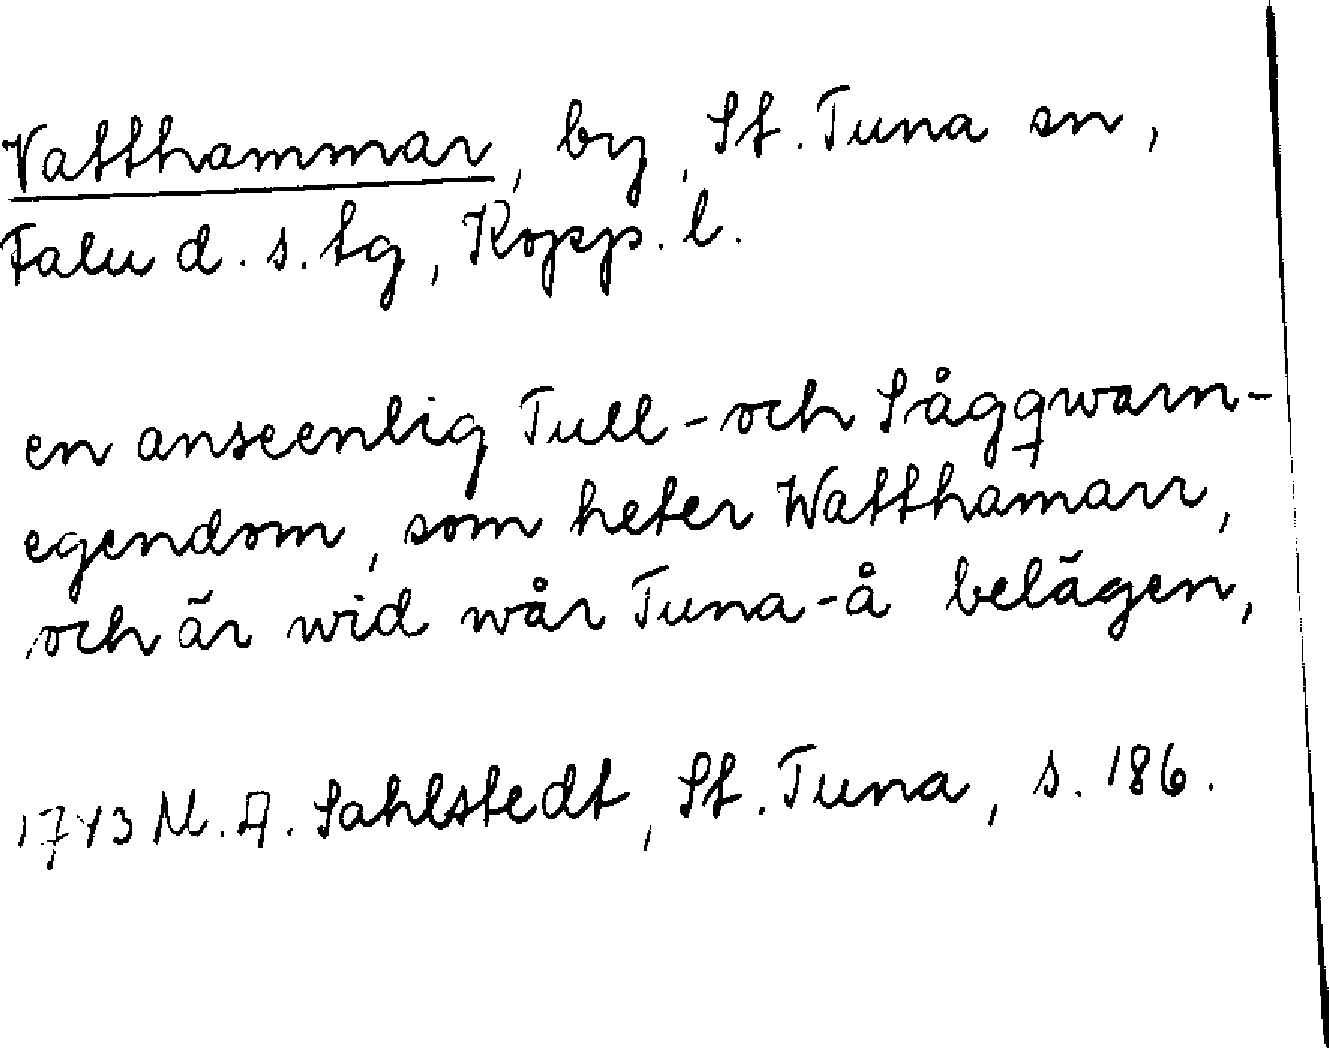 Vatthammar, by, St. Tuna sn,
Falu d. s. tg, Kopp. l.
en anseenlig Tull-och Sågqwarn-
egendom, som heter Watthamarr,
och är wid wår Tuna-å belägen,
1743 M. A. Sahlstedt, St. Tuna, s. 186.